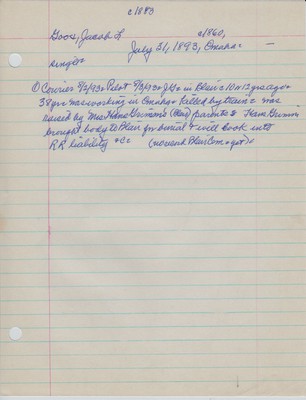 c1883
Goos, Jacob L. c1860,
July 31, 1893, Omaha
single
① Courier 8/2/93 + Pilot 8/3/93 = JLG = in Blair = 10 or 12 yrs ago +
38 yr = was working in Omaha + killed by train = was
raised by Mrs Hans Grimm's (May) parents & Hans Grimm
brought body to Blair for burial + will look into
RR liability +Cc (now end Blair Cem + get) +